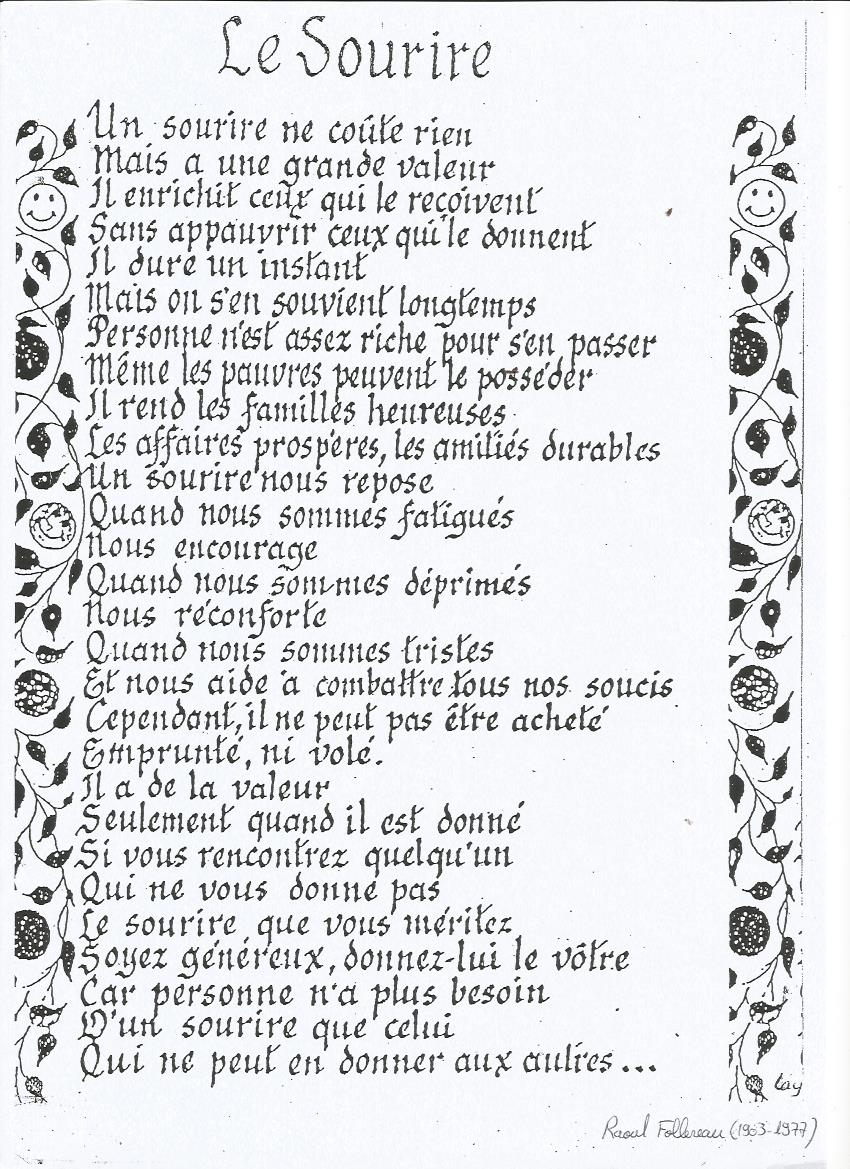 Le Sourire
Un sourire ne coûte rien
Mais a une grande valeur
Il enrichit ceux qui le reçoivent
Sans appauvrir ceux qui le donnent
Il dure un instant
Mais on s'en souvient longtemps
Personne n'est assez riche pour s'en passer
Même les pauvres peuvent le posséder
Il rend les familles heureuses
Les affaires prospères, les amitiés durables
Un sourire nous repose
Quand nous sommes fatigués
Nous encourage
Quand nous sommes déprimés
Nous réconforte
Quand nous sommes tristes
Et nous aide à combattre tous nos soucis
Cependant, il ne peut pas être acheté
Emprunté, ni volé.
Il a de la valeur
Seulement quand il est donné
Si vous rencontrez quelqu'un
Qui ne vous donne pas
Le sourire que vous méritez
Soyez généreux, donnez-lui le vôtre
Car personne n'a plus besoin
D'un sourire que celui
Qui ne peut en donner aux autres...
Lay
Raoul Follereau (1903-1977)